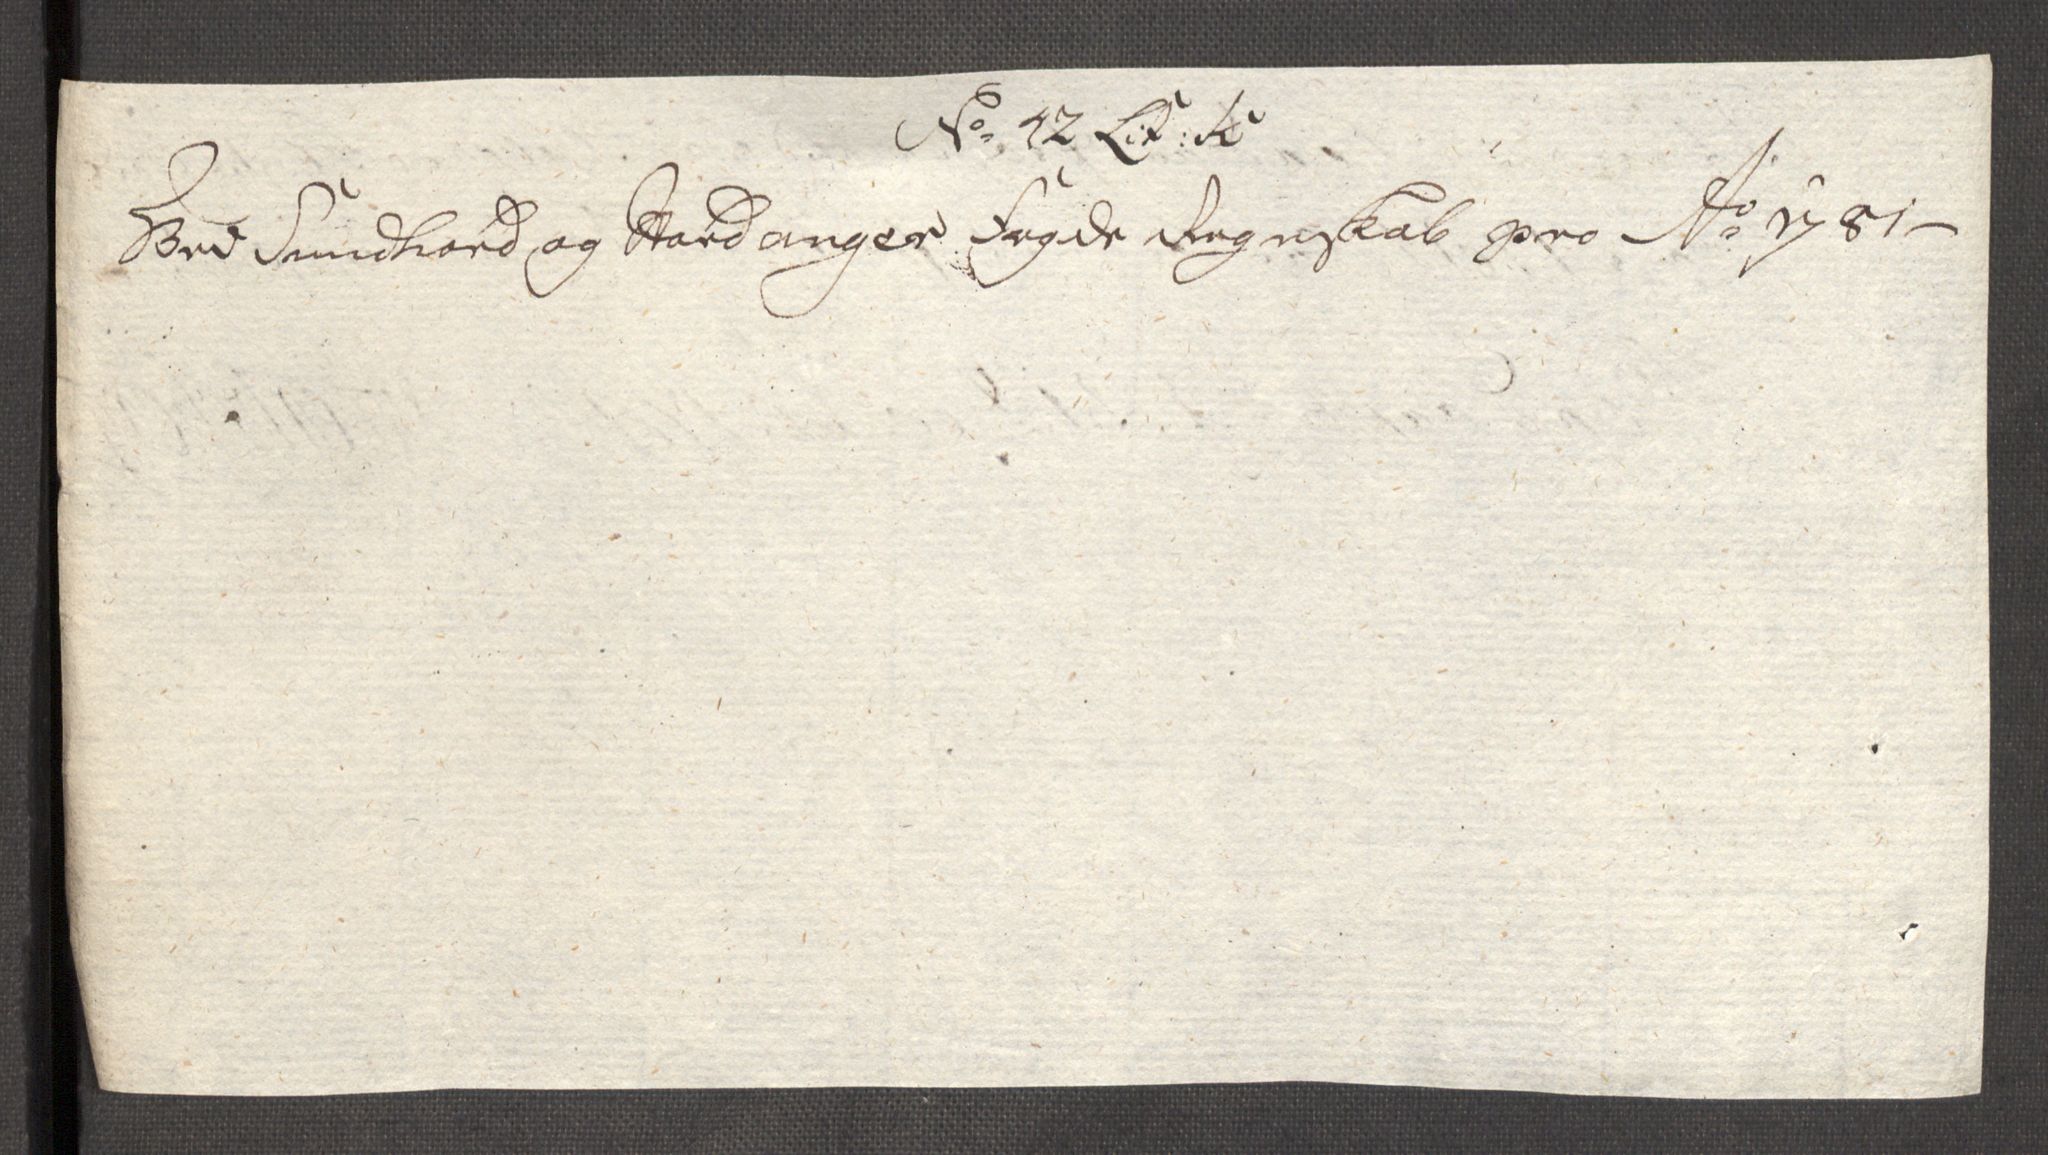 No. 42 Lit: K
Ved Sundhord og Hardanger Fogde Regnskab pro Ao. 1781